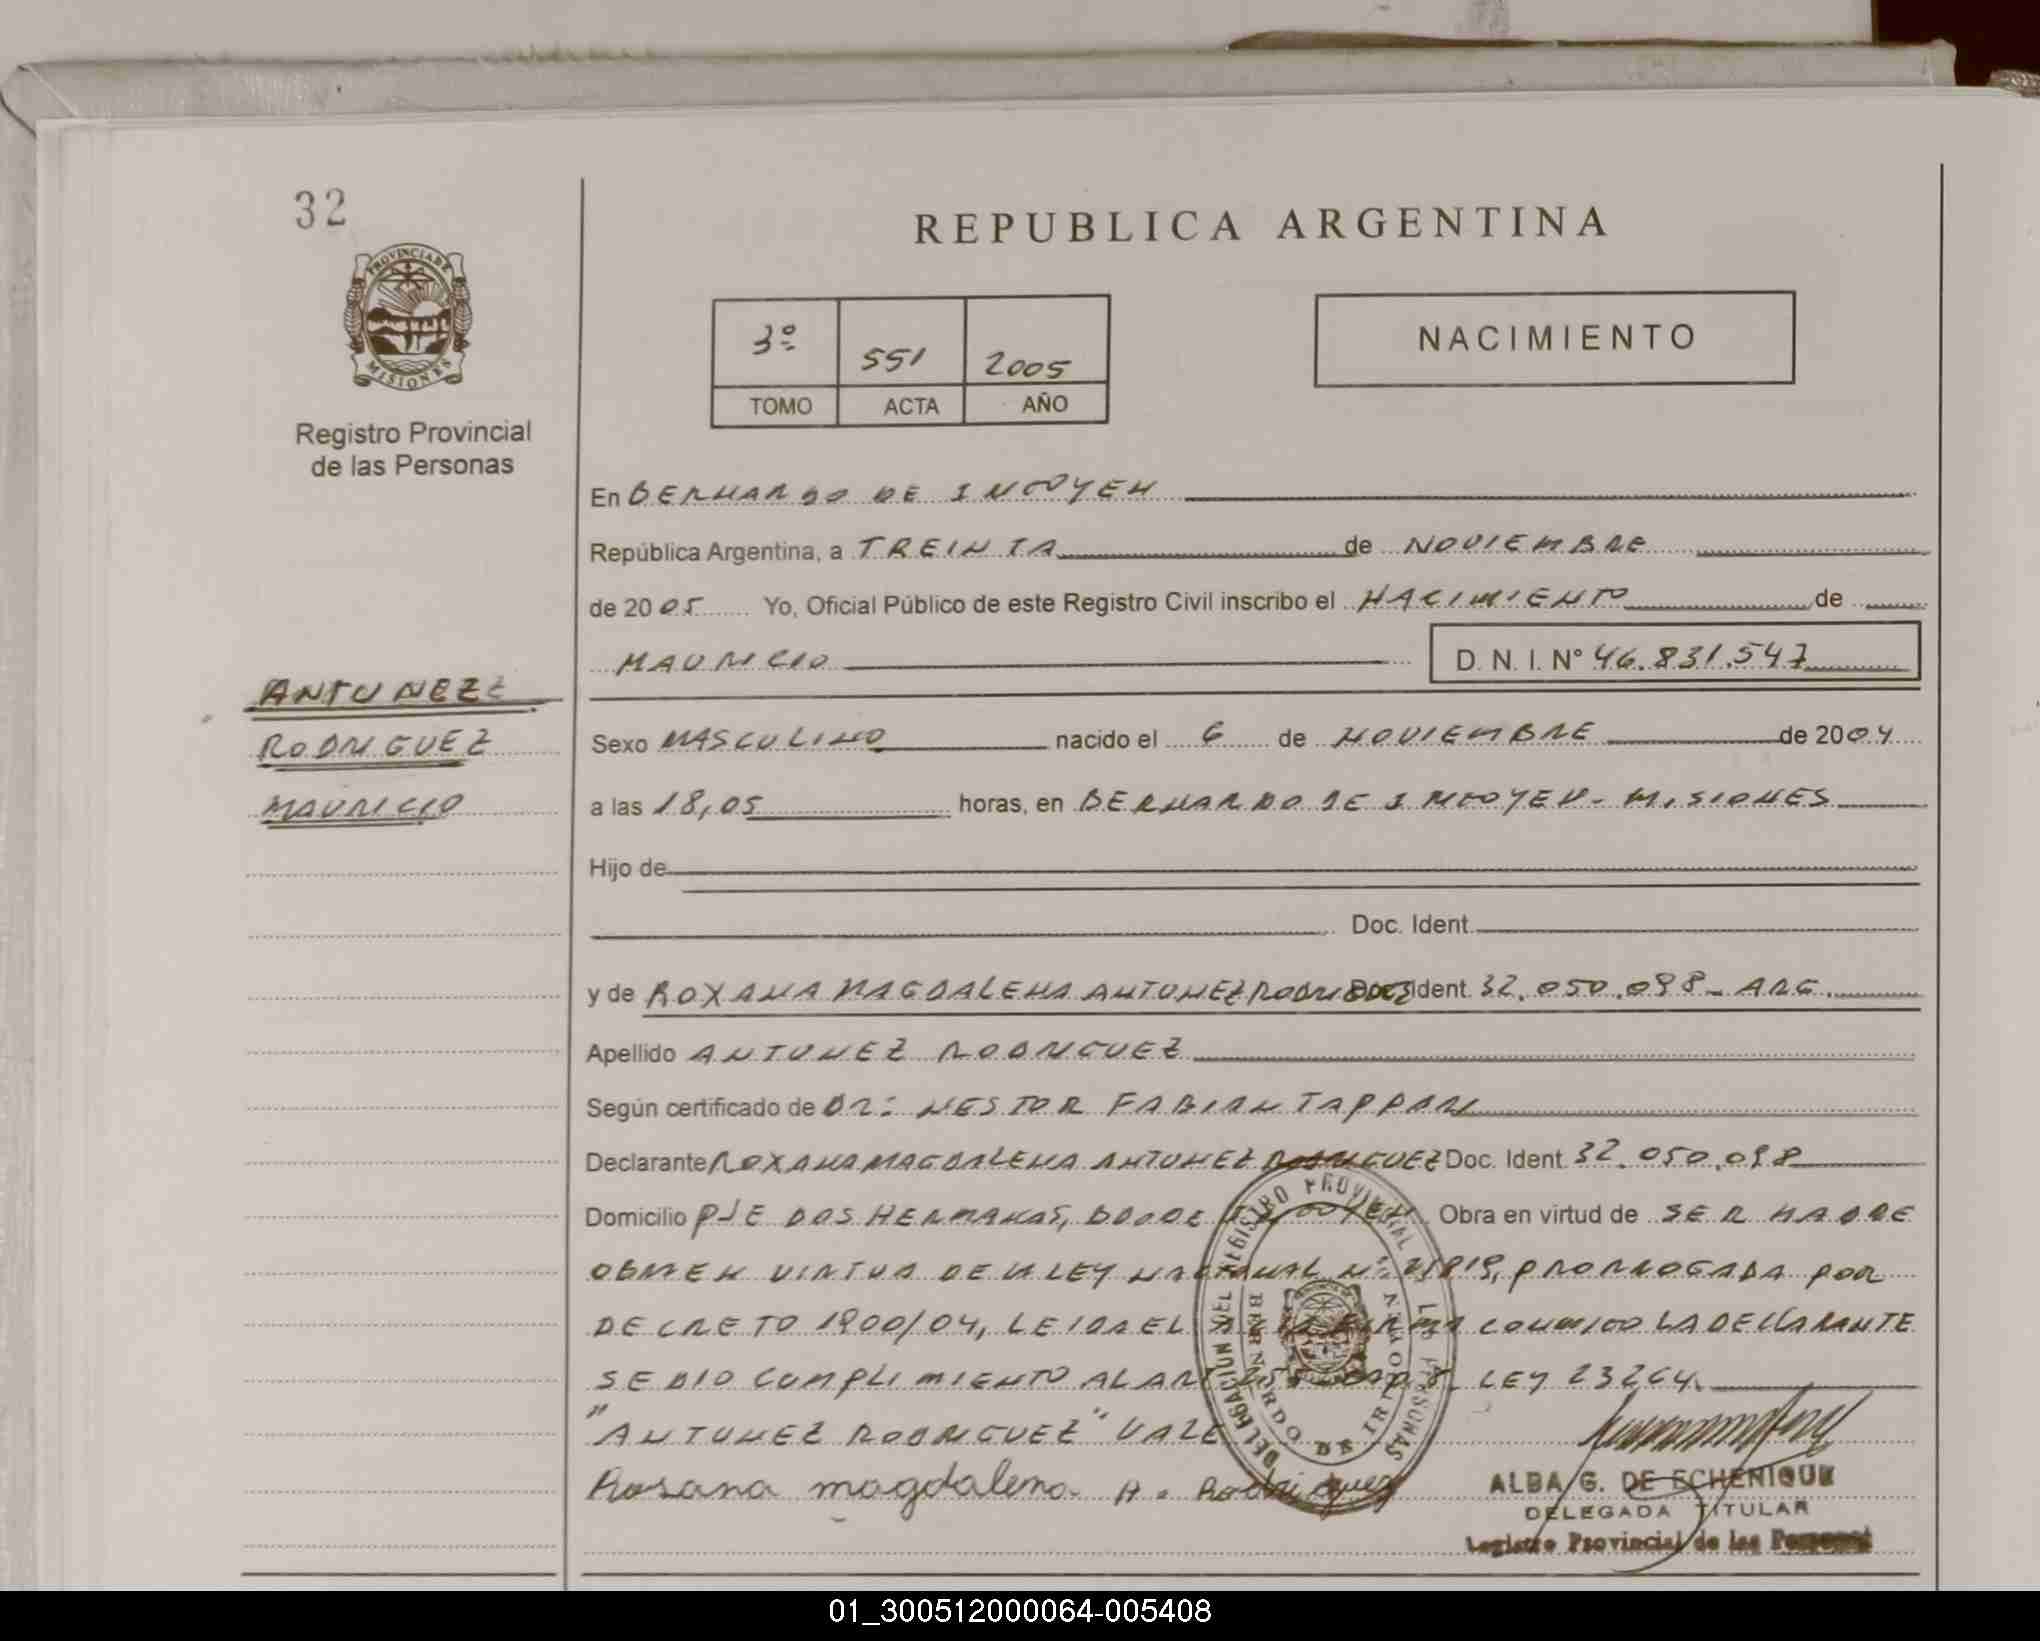 32
REPUBLICA ARGENTINA
PROVINCIA DE
MISIONES
Registro Provincial
de las Personas
3º 551 2005
TOMO ACTA AÑO
NACIMIENTO
En BERNARDO DE IRIGOYEN
República Argentina, a TREINTA de NOVIEMBRE
de 2005 Yo, Oficial Público de este Registro Civil inscribo el NACIMIENTO de
MAURICIO D. N. I. Nº 46.831.547
ANTUNEZ
RODRIGUEZ
MAURICIO
Sexo MASCULINO nacido el 6 de NOVIEMBRE de 2004
a las 18,05 horas, en BERNARDO DE IRIGOYEN - MISIONES
Hijo de
Doc. Ident.
y de ROXANA MAGDALENA ANTUNEZ RODRIGUEZ Doc. Ident. 32.050.098 - ARG.
Apellido ANTUNEZ RODRIGUEZ
Según certificado de DR: NESTOR FABIAN TAPPARI
Declarante ROXANA MAGDALENA ANTUNEZ RODRIGUEZ Doc. Ident. 32.050.098
Domicilio PJE DOS HERMANAS, BDO DE IRIGOYEN Obra en virtud de SER MADRE
OBRA EN VIRTUD DE LA LEY NACIONAL Nº PRORROGADA POR
DECRETO 1900/04, LEIDA EL ACTA FIRMA CONMIGO LA DECLARANTE
SE DIO CUMPLIMIENTO AL ART LEY 23264.
"ANTUNEZ RODRIGUEZ" VALE
Rosana magdalena A. Rodriguez
DELEGACION DEL REGISTRO PROVINCIAL DE LAS PERSONAS
BERNARDO DE IRIGOYEN
ALBA G. DE ECHENIQUE
DELEGADA TITULAR
Registro Provincial de las Personas
01_300512000064-005408